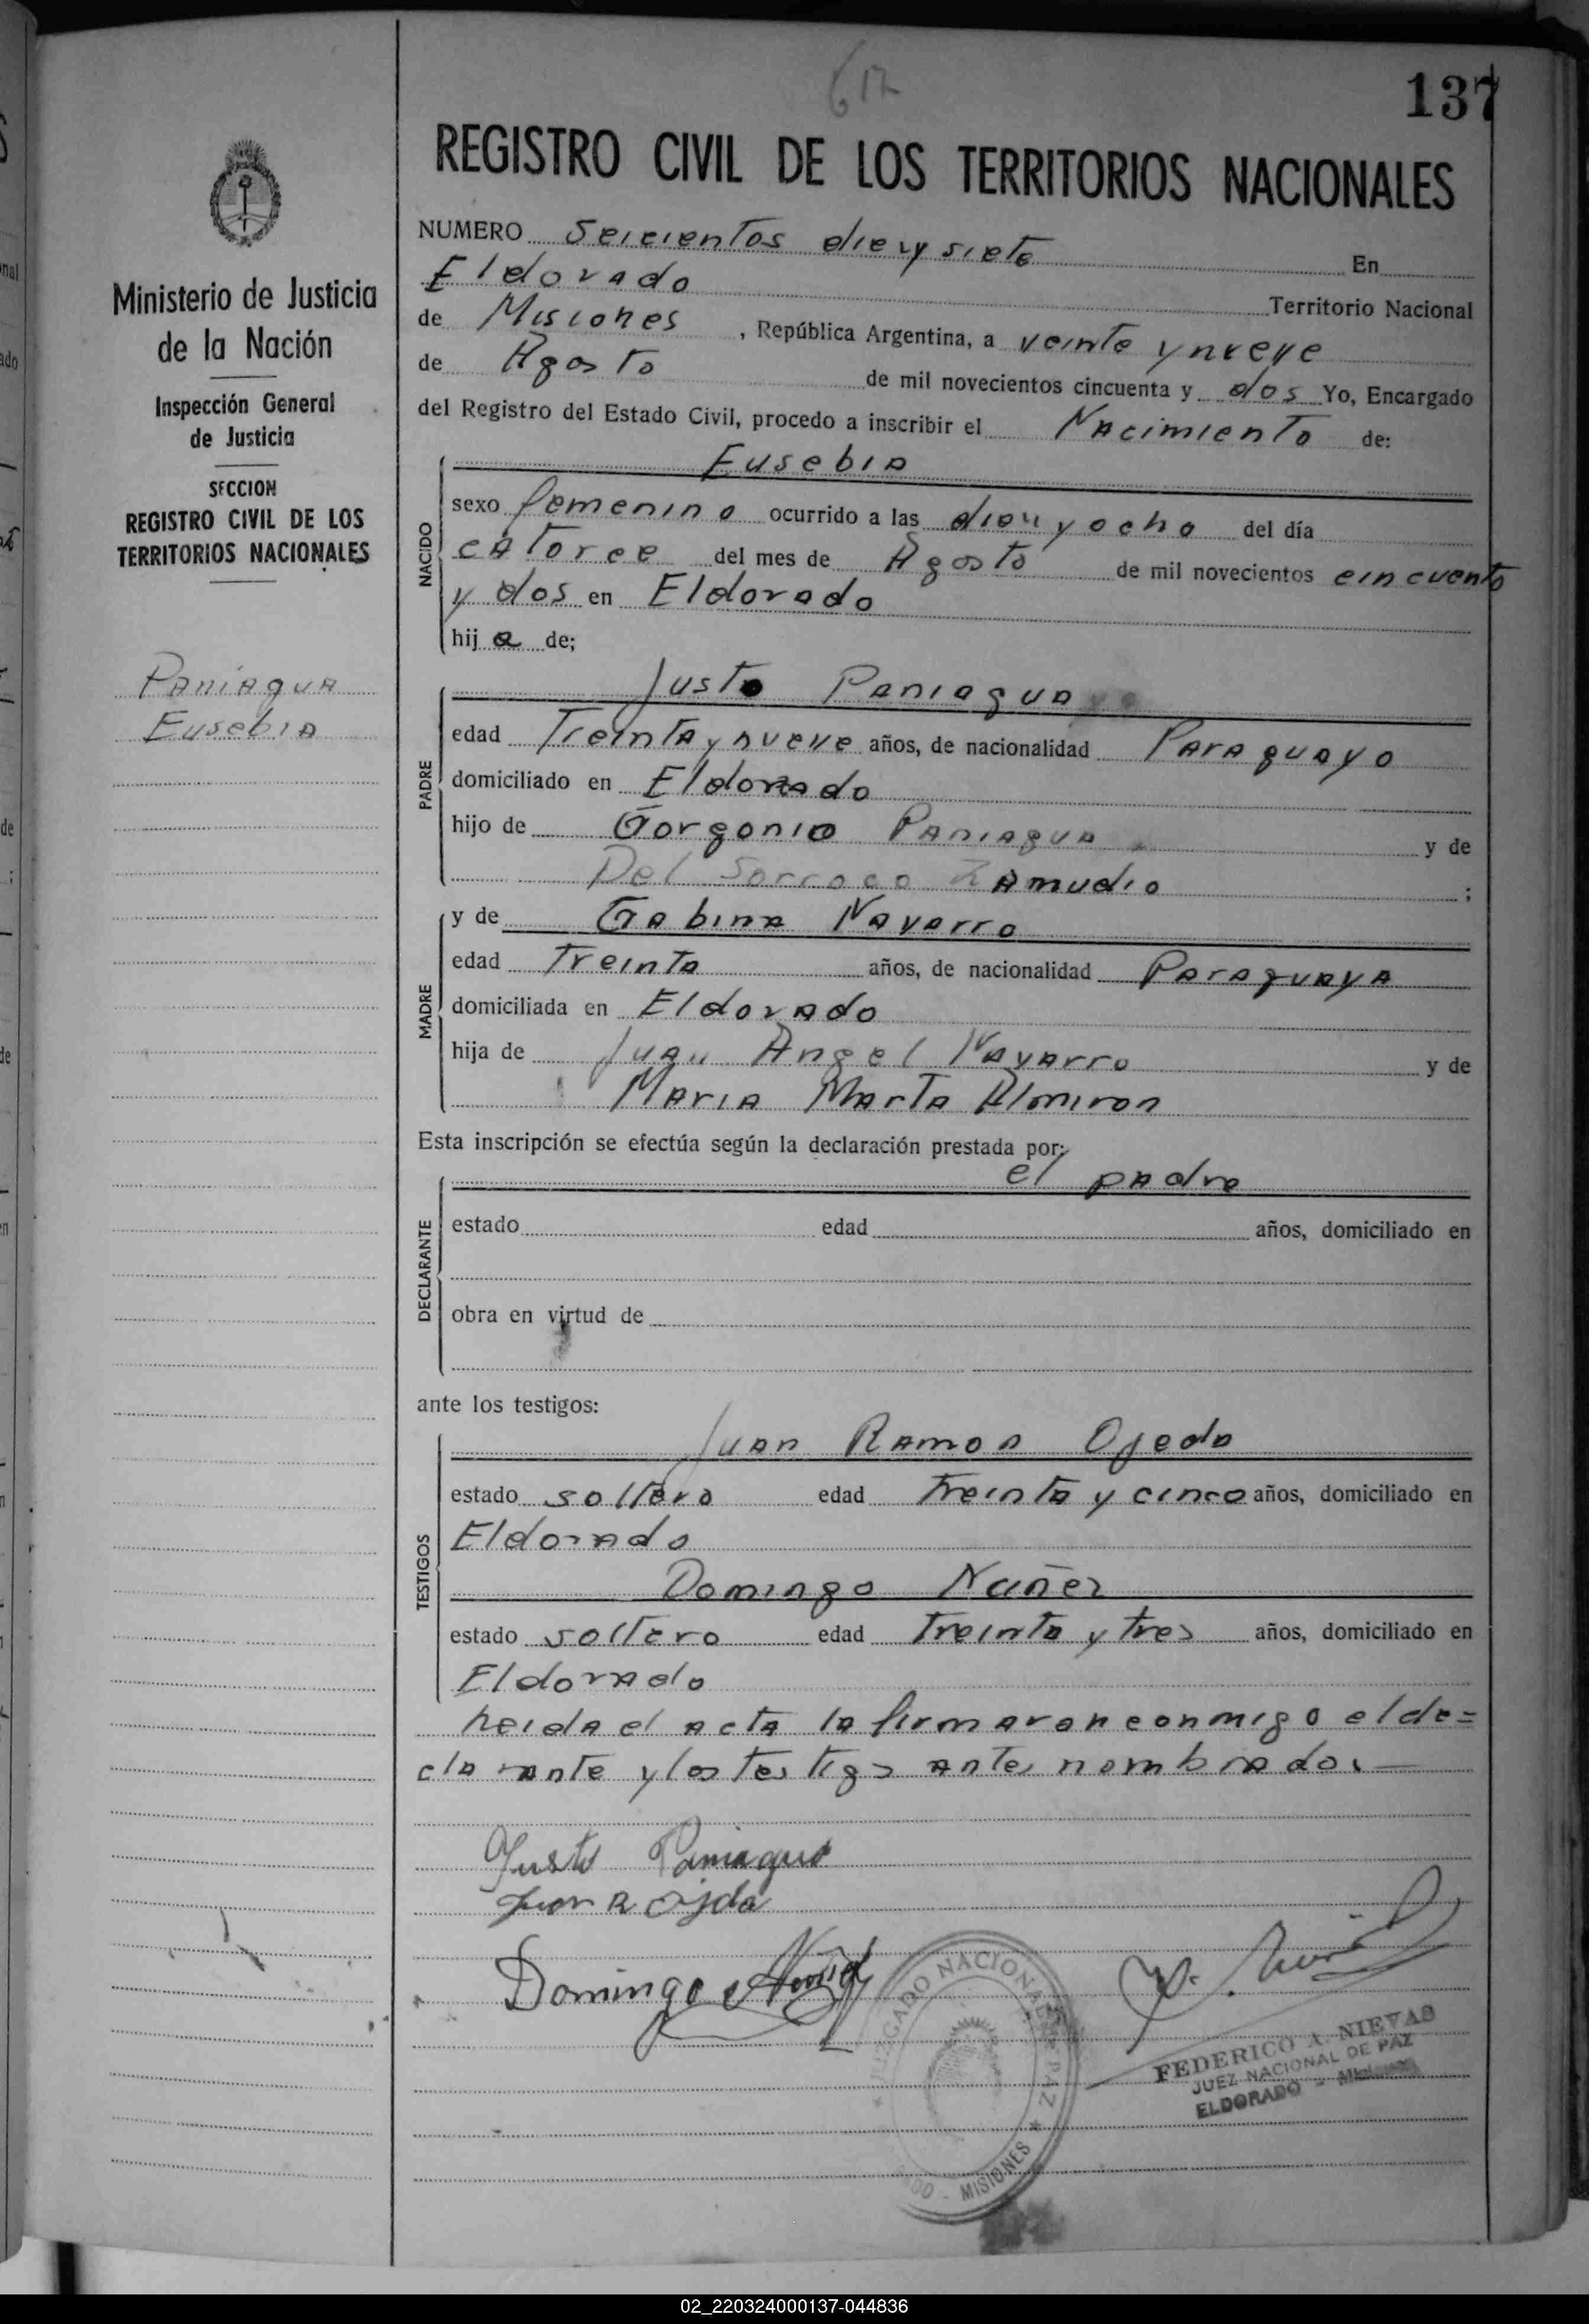 617
137
REGISTRO CIVIL DE LOS TERRITORIOS NACIONALES
Ministerio de Justicia
de la Nación
Inspección General
de Justicia
SECCION
REGISTRO CIVIL DE LOS
TERRITORIOS NACIONALES
Paniagua
Eusebia
NUMERO Seicientos diez y siete En
Eldorado Territorio Nacional
de Misiones, República Argentina, a veinte y nueve
de Agosto de mil novecientos cincuenta y dos Yo, Encargado
del Registro del Estado Civil, procedo a inscribir el Nacimiento de:
NACIDO
Eusebia
sexo femenino ocurrido a las diez y ocho del día
catorce del mes de Agosto de mil novecientos cincuenta
y dos en Eldorado
hija de;
PADRE
Justo Paniagua
edad Treinta y nueve años, de nacionalidad Paraguayo
domiciliado en Eldorado
hijo de Gorgonio Paniagua y de
Del Sorroco Zamudio ;
MADRE
y de Gabina Navarro
edad Treinta años, de nacionalidad Paraguaya
domiciliada en Eldorado
hija de Juan Angel Navarro y de
Maria Marta Almiron
Esta inscripción se efectúa según la declaración prestada por:
DECLARANTE
el padre
estado edad años, domiciliado en
obra en virtud de
ante los testigos:
TESTIGOS
Juan Ramon Ojeda
estado soltero edad Treinta y cinco años, domiciliado en
Eldorado
Domingo Nuñez
estado soltero edad Treinta y tres años, domiciliado en
Eldorado
Leida el acta la firmaran conmigo el de=
clarante y los testigos antes nombrados.—
Justo Paniagua
Juan R Ojeda
Domingo Nuñez
JUZGADO NACIONAL DE PAZ
MISIONES
FEDERICO A. NIEVAS
JUEZ NACIONAL DE PAZ
ELDORADO - Misiones
02_220324000137-044836